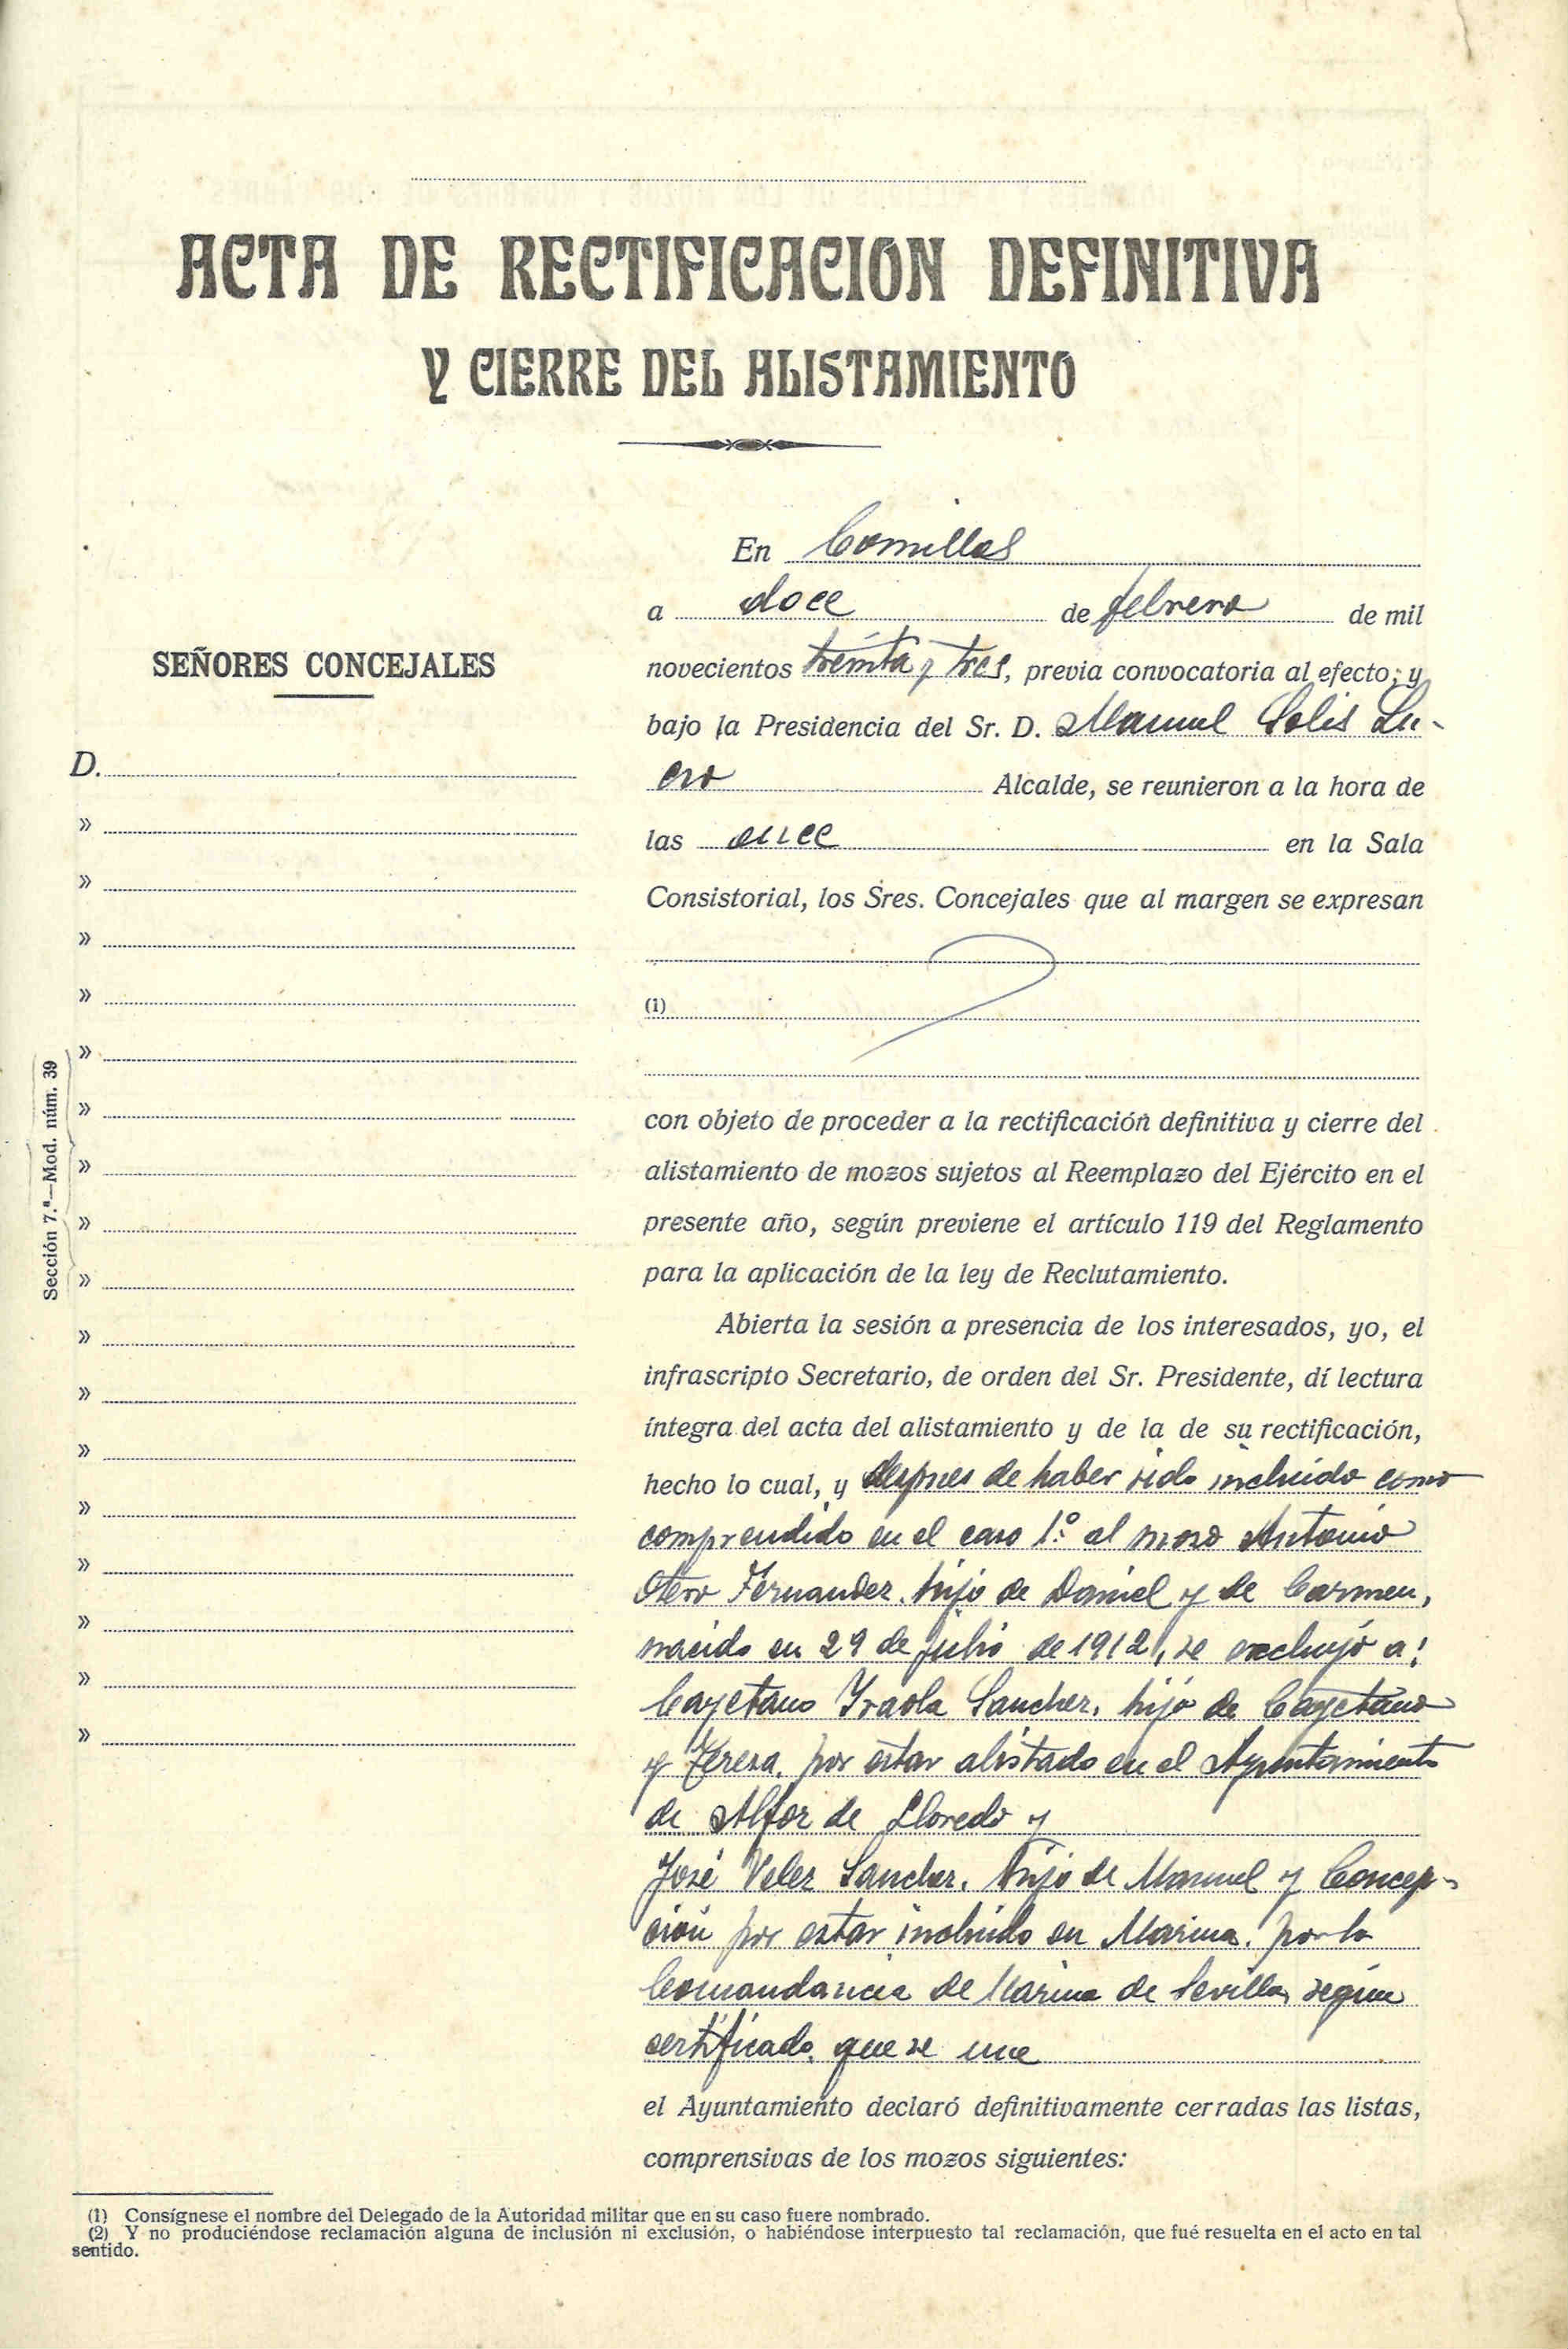 ACTA DE RECTIFICACION DEFINITIVA
Y CIERRE DEL ALISTAMIENTO
En Comillas
a doce de febrero de mil
novecientos treinta y tres, previa convocatoria al efecto; y
bajo la Presidencia del Sr. D. Manuel Solis Lu-
cio Alcalde, se reunieron a la hora de
las once en la Sala
Consistorial, los Sres. Concejales que al margen se expresan
(1)
con objeto de proceder a la rectificación definitiva y cierre del
alistamiento de mozos sujetos al Reemplazo del Ejército en el
presente año, según previene el artículo 119 del Reglamento
para la aplicación de la ley de Reclutamiento.
Abierta la sesión a presencia de los interesados, yo, el
infrascripto Secretario, de orden del Sr. Presidente, dí lectura
íntegra del acta del alistamiento y de la de su rectificación,
hecho lo cual, y despues de haber sido incluido como
comprendido en el caso 1.º al mozo Antonio
Otero Fernandez, hijo de Daniel y de Carmen,
nacido en 29 de julio de 1912, se excluyó a:
Cayetano Iraola Sanchez, hijo de Cayetano
y Teresa, por estar alistado en el Ayuntamiento
de Alfoz de Lloredo y
José Velez Sanchez, hijo de Manuel y Concep-
ción por estar incluido en Marina, por la
Comandancia de Marina de Sevilla, según
certificado que se une
el Ayuntamiento declaró definitivamente cerradas las listas,
comprensivas de los mozos siguientes:
SEÑORES CONCEJALES
D.
»
»
»
»
»
»
»
»
»
»
»
»
»
»
»
»
»
Sección 7.ª—Mod. núm. 39
(1) Consígnese el nombre del Delegado de la Autoridad militar que en su caso fuere nombrado.
(2) Y no produciéndose reclamación alguna de inclusión ni exclusión, o habiéndose interpuesto tal reclamación, que fué resuelta en el acto en tal
sentido.